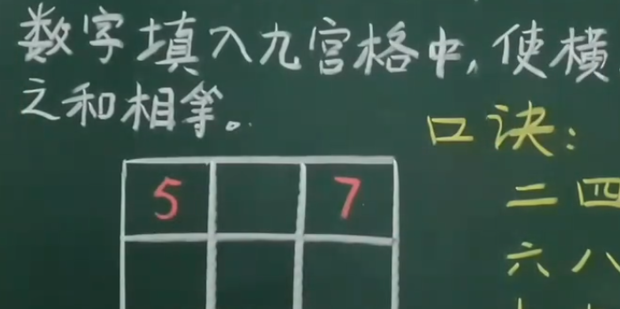 数字填入九宫格中,使横
之和相等。
口诀:
二四
5 7
六八